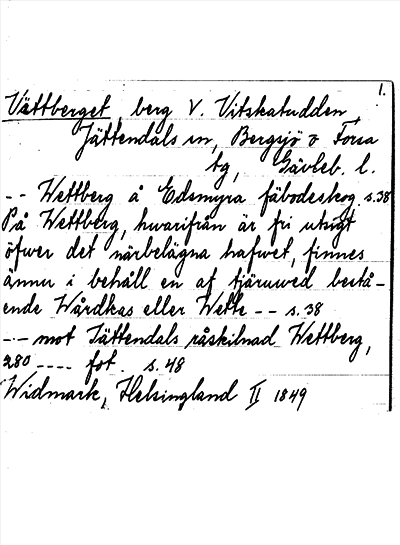 1.
Vättberget berg V. Vitskatudden,
Jättendals sn, Bergsjö o Forsa
tg, Gävleb. l.
-- Wettberg å Edsmyra fäbodeskog. s.38
På Wettberg, hwarifrån är fri utsigt
öfwer det närbelägna hafwet, finnes
ännu i behåll en af tjäruwed bestå-
ende Wårdkas eller Wette -- s. 38
-- mot Jättendals råskilnad Wettberg,
280 ---- fot. s. 48
Widmark, Helsingland II 1849